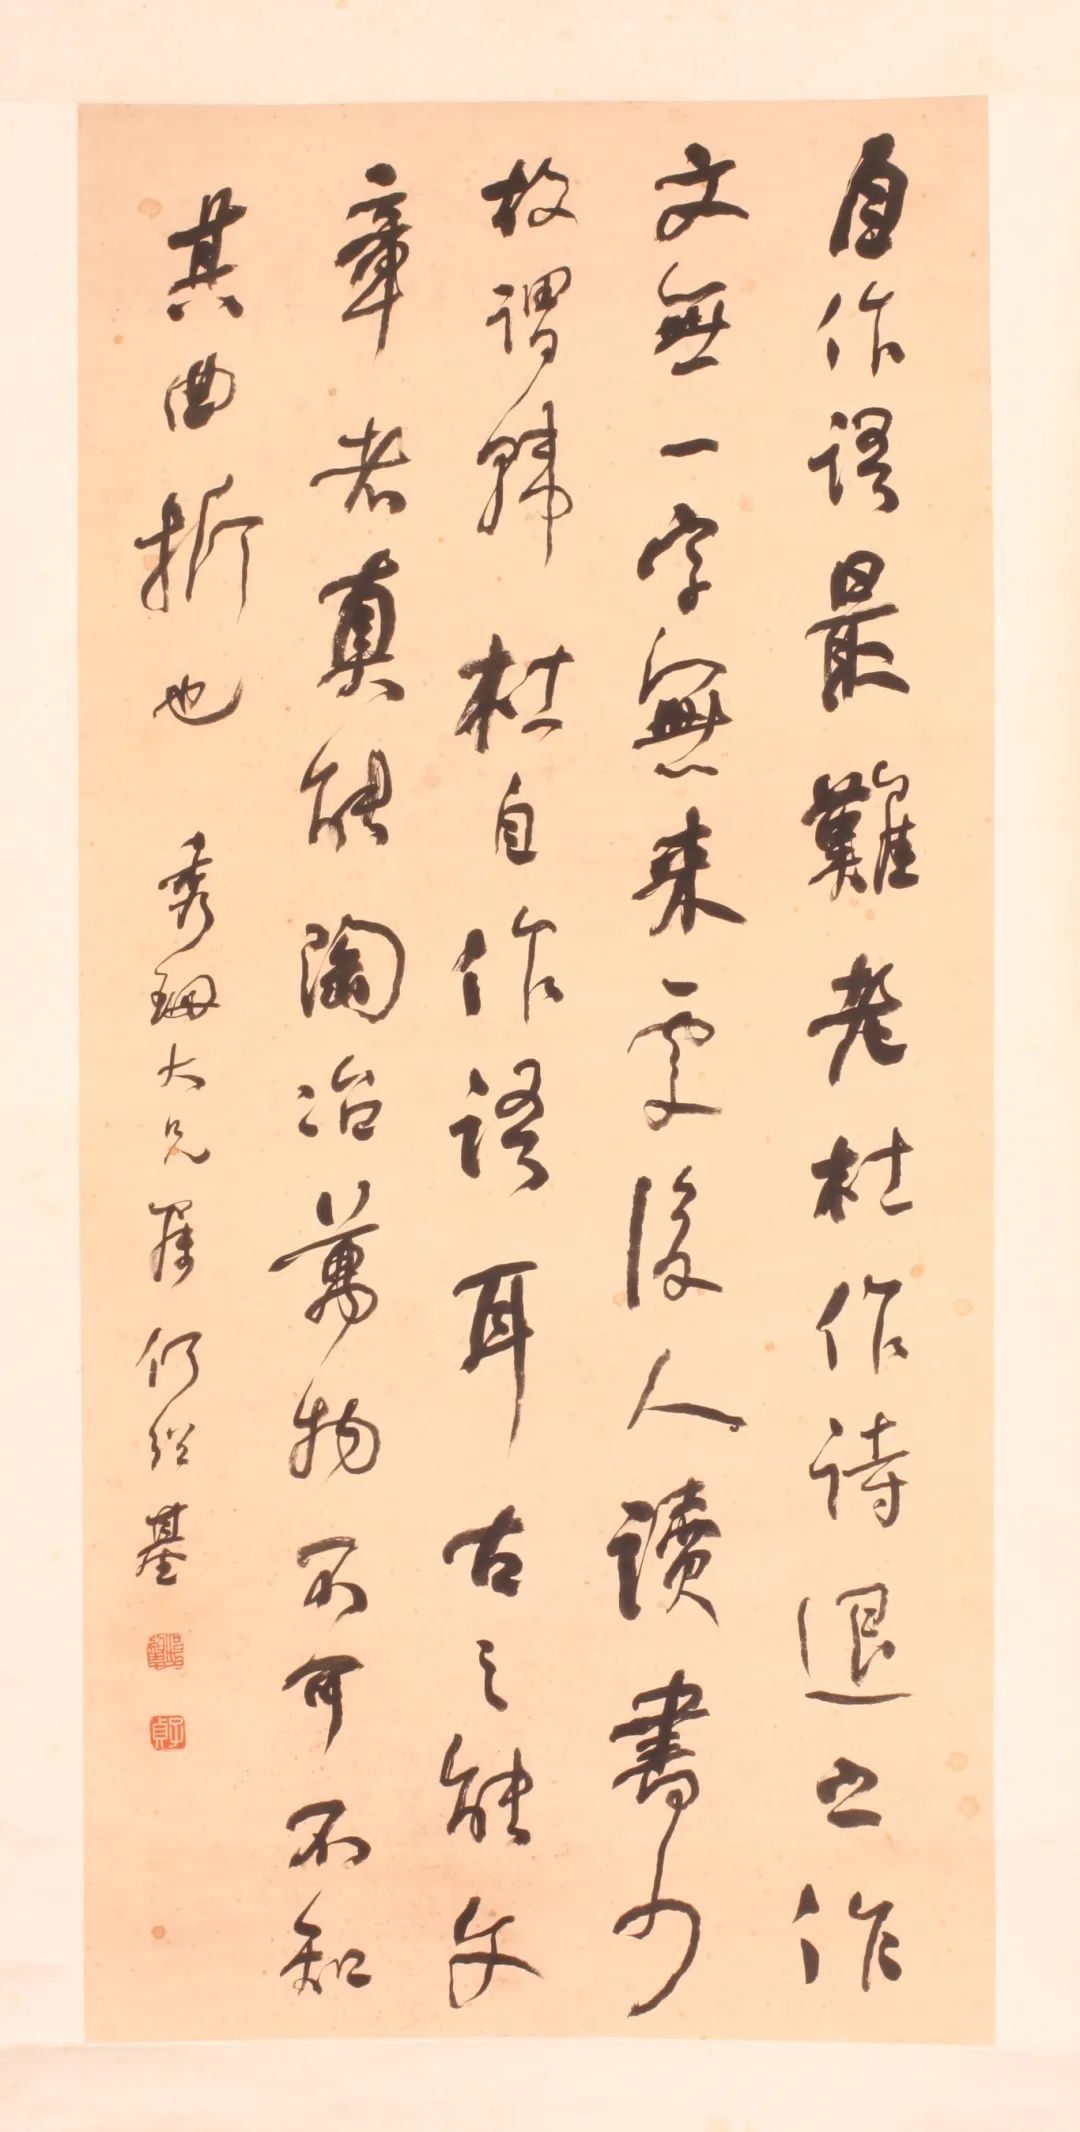 自作語最難老杜作詩退之作
文無一字無来處後人讀書少
故謂韓杜自作語耳古之能文
章者真能陶冶萬物不可不知
其曲折也
秀珊大兄屬何紹基
子貞